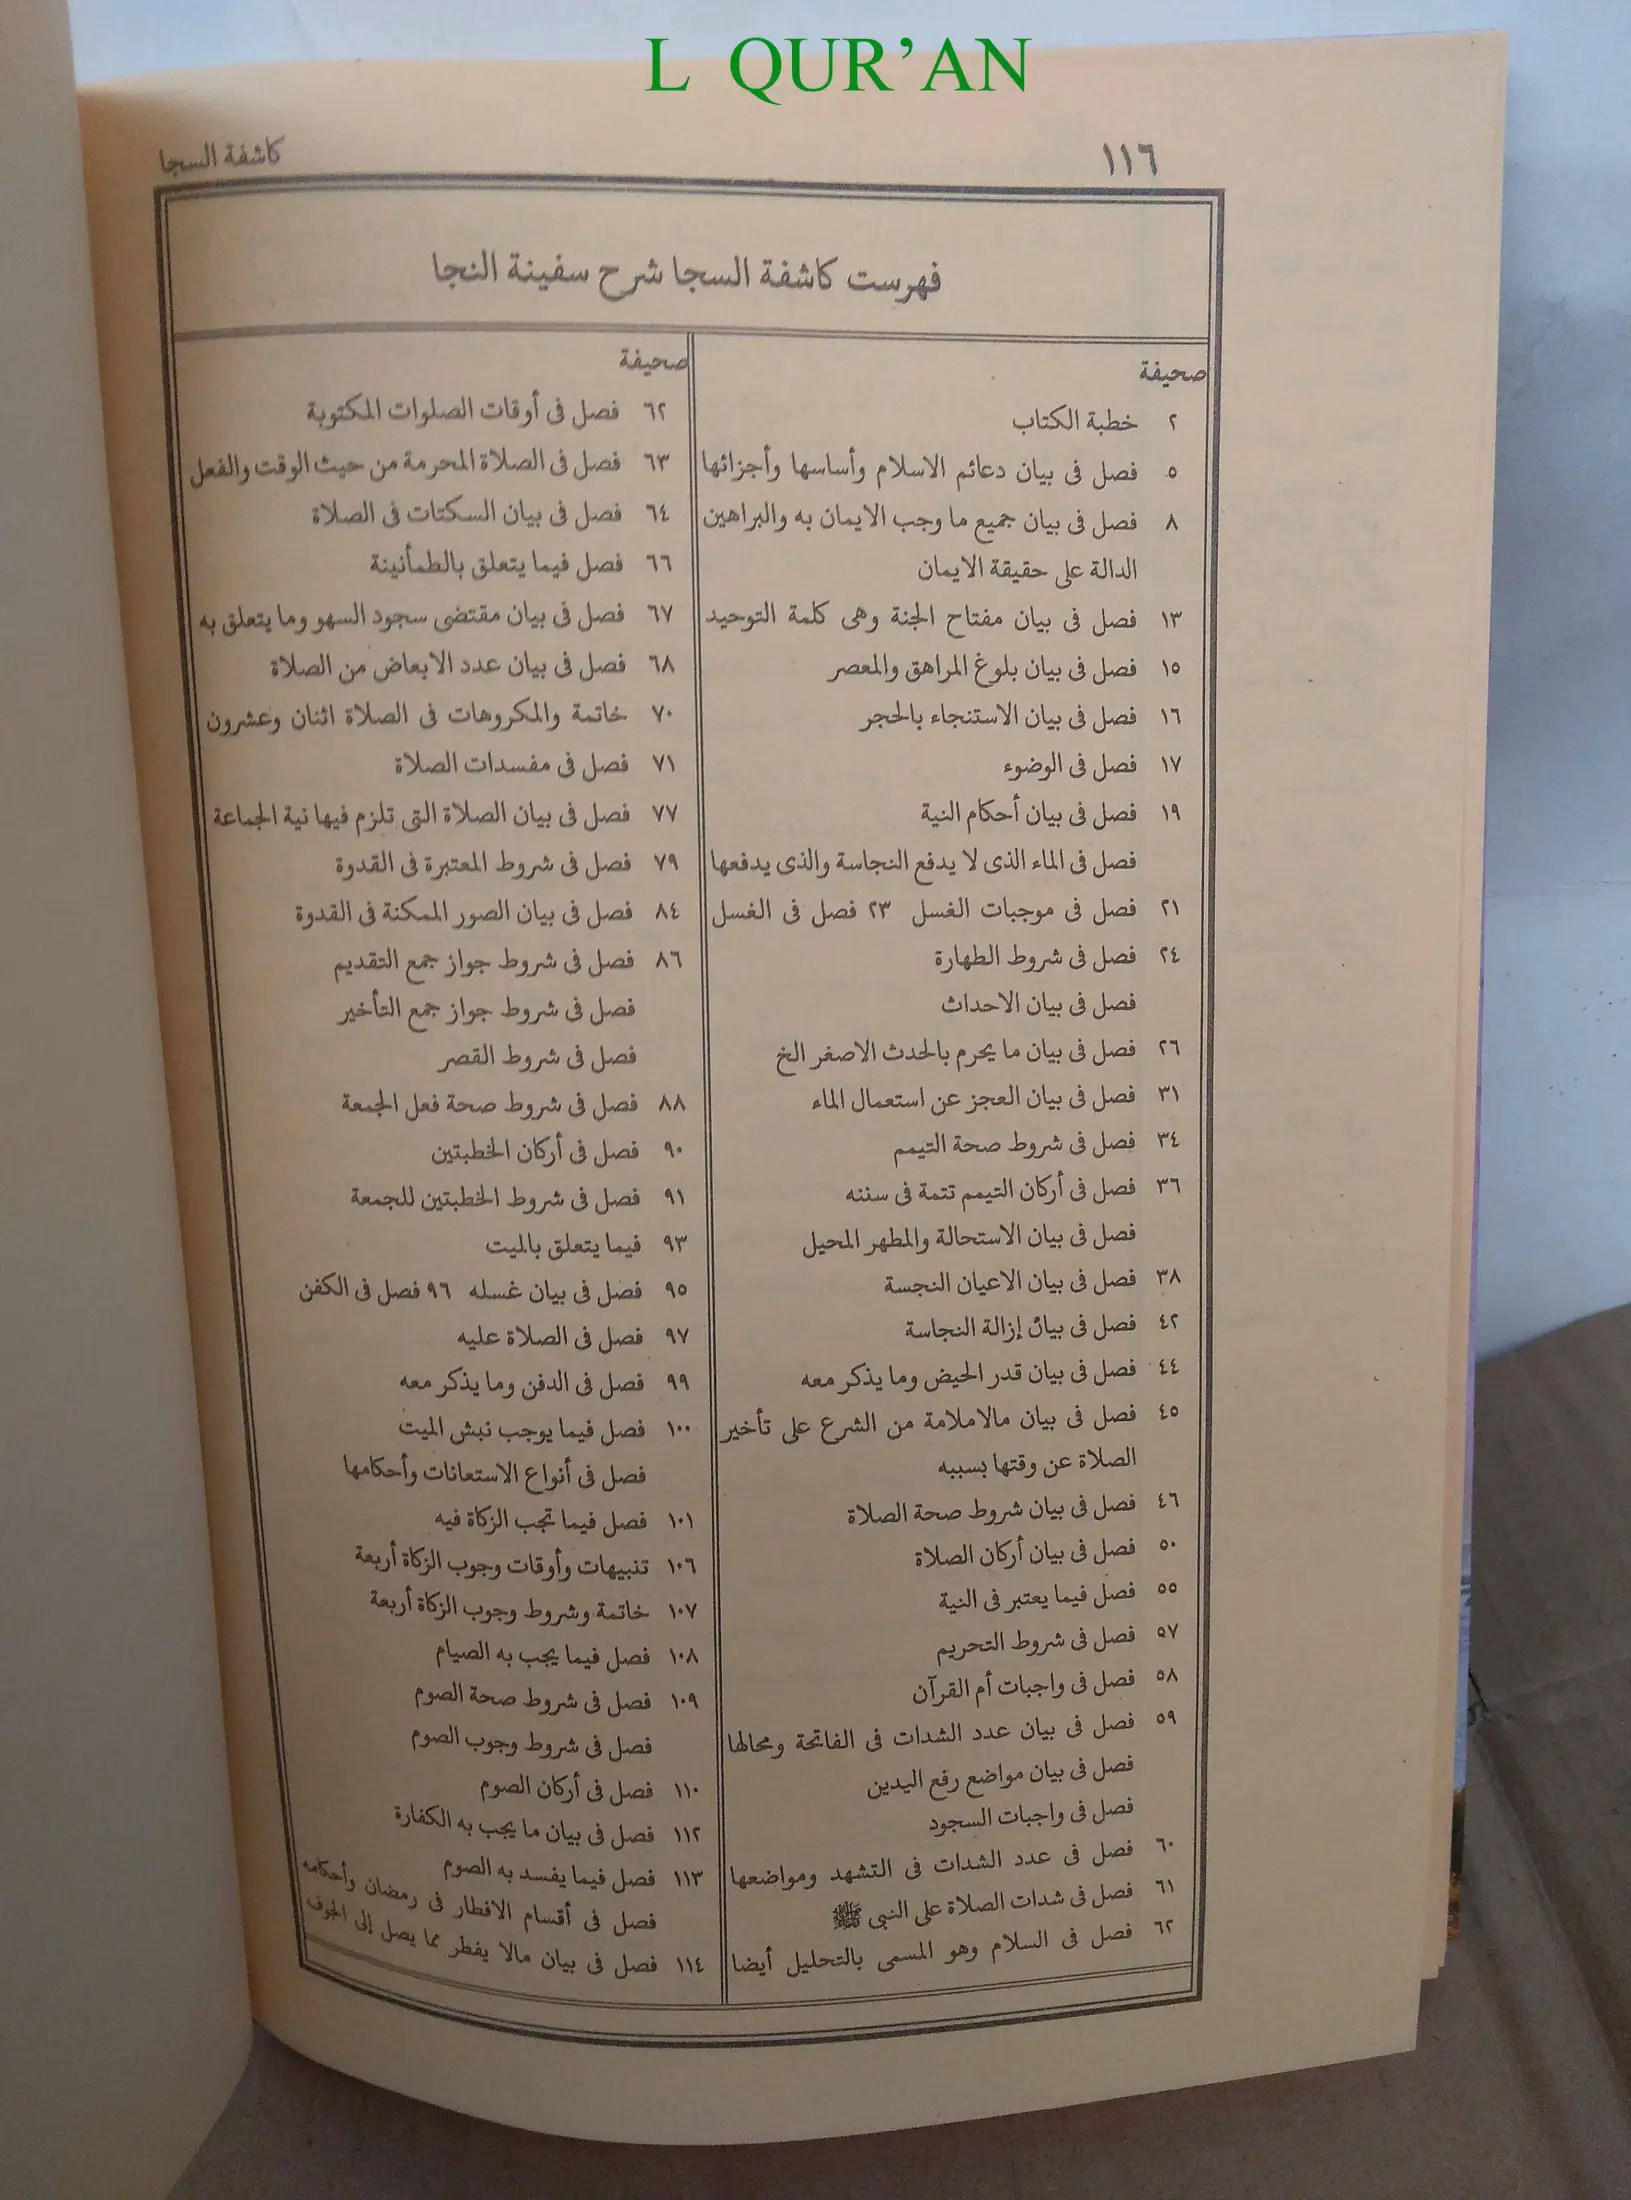 L QUR’AN
١١٦
كاشفة السجا
فهرست كاشفة السجا شرح سفينة النجا
صحيفة
٢ خطبة الكتاب
٥ فصل فى بيان دعائم الاسلام وأساسها وأجزائها
٨ فصل فى بيان جميع ما وجب الايمان به والبراهين
الدالة على حقيقة الايمان
١٣ فصل فى بيان مفتاح الجنة وهى كلمة التوحيد
١٥ فصل فى بيان بلوغ المراهق والمعصر
١٦ فصل فى بيان الاستنجاء بالحجر
١٧ فصل فى الوضوء
١٩ فصل فى بيان أحكام النية
فصل فى الماء الذى لا يدفع النجاسة والذى يدفعها
٢١ فصل فى موجبات الغسل ٢٣ فصل فى الغسل
٢٤ فصل فى شروط الطهارة
فصل فى بيان الاحداث
٢٦ فصل فى بيان ما يحرم بالحدث الاصغر الخ
٣١ فصل فى بيان العجز عن استعمال الماء
٣٤ فصل فى شروط صحة التيمم
٣٦ فصل فى أركان التيمم تتمة فى سننه
فصل فى بيان الاستحالة والمطهر المحيل
٣٨ فصل فى بيان الاعيان النجسة
٤٢ فصل فى بيان إزالة النجاسة
٤٤ فصل فى بيان قدر الحيض وما يذكر معه
٤٥ فصل فى بيان مالاملامة من الشرع على تأخير
الصلاة عن وقتها بسببه
٤٦ فصل فى بيان شروط صحة الصلاة
٥٠ فصل فى بيان أركان الصلاة
٥٥ فصل فيما يعتبر فى النية
٥٧ فصل فى شروط التحريم
٥٨ فصل فى واجبات أم القرآن
٥٩ فصل فى بيان عدد الشدات فى الفاتحة ومحالها
فصل فى بيان مواضع رفع اليدين
فصل فى واجبات السجود
٦٠ فصل فى عدد الشدات فى التشهد ومواضعها
٦١ فصل فى شدات الصلاة على النبى ﷺ
٦٢ فصل فى السلام وهو المسمى بالتحليل أيضا
صحيفة
٦٢ فصل فى أوقات الصلوات المكتوبة
٦٣ فصل فى الصلاة المحرمة من حيث الوقت والفعل
٦٤ فصل فى بيان السكتات فى الصلاة
٦٦ فصل فيما يتعلق بالطمأنينة
٦٧ فصل فى بيان مقتضى سجود السهو وما يتعلق به
٦٨ فصل فى بيان عدد الابعاض من الصلاة
٧٠ خاتمة والمكروهات فى الصلاة اثنان وعشرون
٧١ فصل فى مفسدات الصلاة
٧٧ فصل فى بيان الصلاة التى تلزم فيها نية الجماعة
٧٩ فصل فى شروط المعتبرة فى القدوة
٨٤ فصل فى بيان الصور الممكنة فى القدوة
٨٦ فصل فى شروط جواز جمع التقديم
فصل فى شروط جواز جمع التأخير
فصل فى شروط القصر
٨٨ فصل فى شروط صحة فعل الجمعة
٩٠ فصل فى أركان الخطبتين
٩١ فصل فى شروط الخطبتين للجمعة
٩٣ فيما يتعلق بالميت
٩٥ فصل فى بيان غسله ٩٦ فصل فى الكفن
٩٧ فصل فى الصلاة عليه
٩٩ فصل فى الدفن وما يذكر معه
١٠٠ فصل فيما يوجب نبش الميت
فصل فى أنواع الاستعانات وأحكامها
١٠١ فصل فيما تجب الزكاة فيه
١٠٦ تنبيهات وأوقات وجوب الزكاة أربعة
١٠٧ خاتمة وشروط وجوب الزكاة أربعة
١٠٨ فصل فيما يجب به الصيام
١٠٩ فصل فى شروط صحة الصوم
فصل فى شروط وجوب الصوم
١١٠ فصل فى أركان الصوم
١١٢ فصل فى بيان ما يجب به الكفارة
١١٣ فصل فيما يفسد به الصوم
فصل فى أقسام الافطار فى رمضان وأحكامه
١١٤ فصل فى بيان مالا يفطر مما يصل إلى الجوف